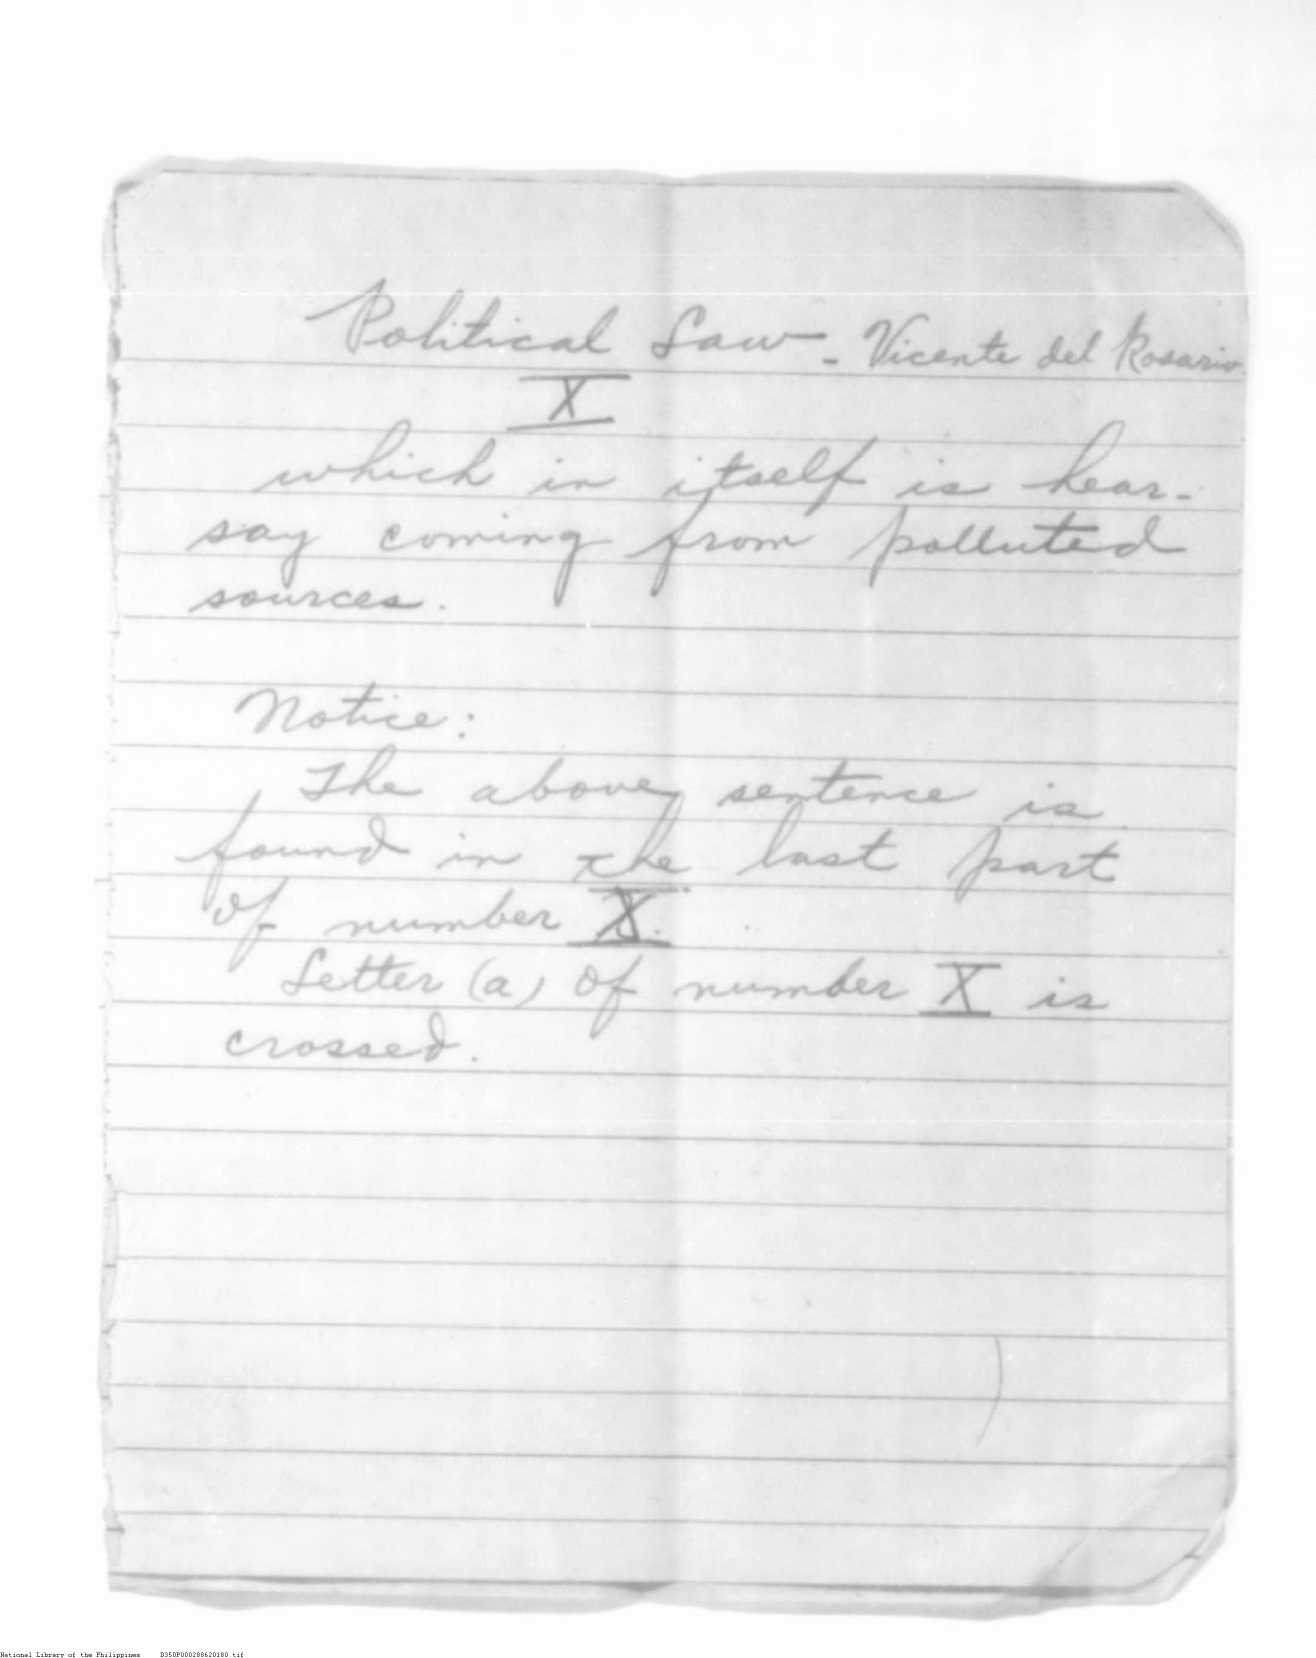 Political Law - Vicente del Rosario
X
which in itself is hear-
say coming from polluted
sources.
Notice:
The above sentence is
found in the last part
of number X.
Letter (a) of number X is
crossed.
National Library of the Philippines D350P000288620180.tif